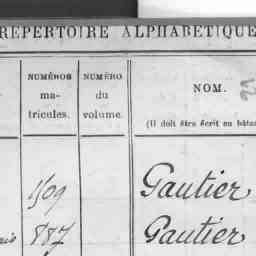 REPERTOIRE ALPHABETIQUE
NUMÉROS NUMÉRO
ma- du NOM.
tricules. volume.
(Il doit être écrit en bâta
1509 Gautier
887 Gautier